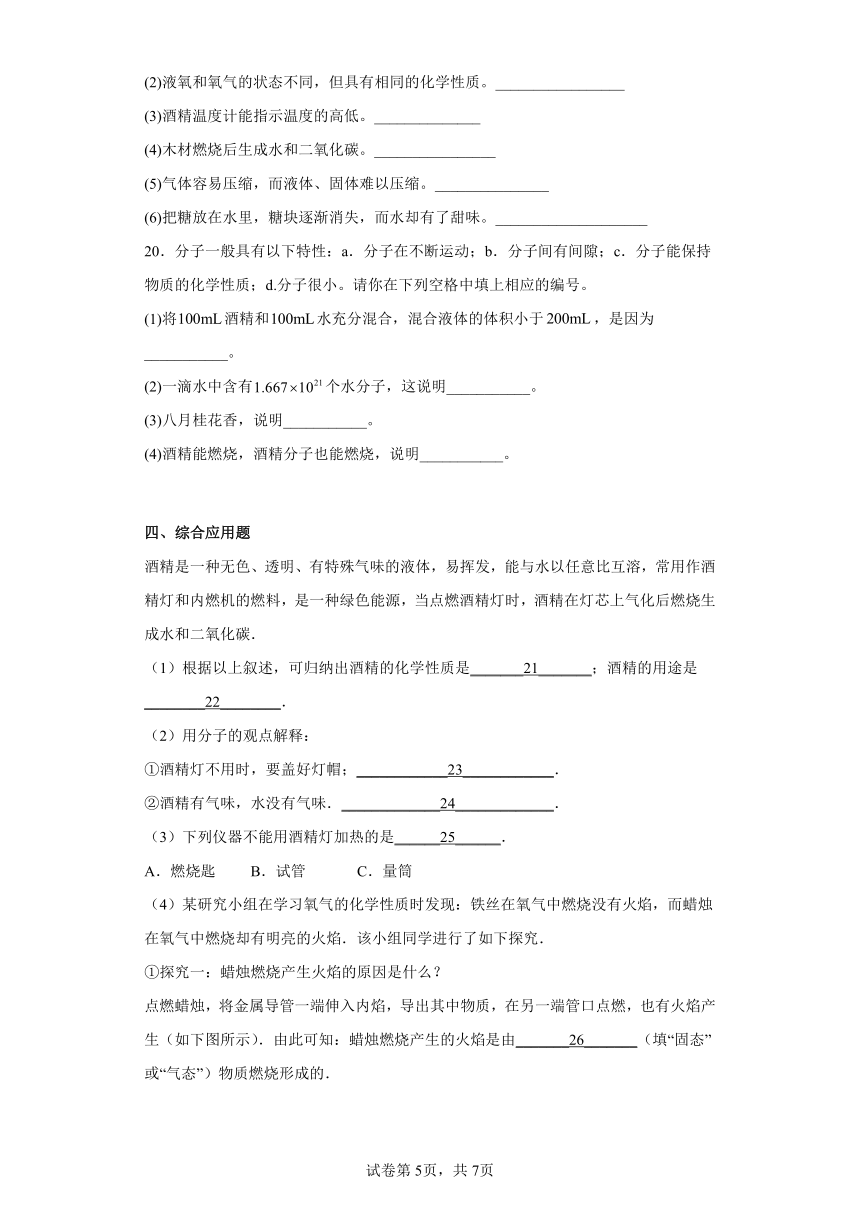 (2)液氧和氧气的状态不同，但具有相同的化学性质。_________________
(3)酒精温度计能指示温度的高低。______________
(4)木材燃烧后生成水和二氧化碳。________________
(5)气体容易压缩，而液体、固体难以压缩。_______________
(6)把糖放在水里，糖块逐渐消失，而水却有了甜味。____________________
20．分子一般具有以下特性：a．分子在不断运动；b．分子间有间隙；c．分子能保持
物质的化学性质；d.分子很小。请你在下列空格中填上相应的编号。
(1)将100mL酒精和100mL水充分混合，混合液体的体积小于200mL，是因为
___________。
(2)一滴水中含有1.667×10²¹个水分子，这说明___________。
(3)八月桂花香，说明___________。
(4)酒精能燃烧，酒精分子也能燃烧，说明___________。
四、综合应用题
酒精是一种无色、透明、有特殊气味的液体，易挥发，能与水以任意比互溶，常用作酒
精灯和内燃机的燃料，是一种绿色能源，当点燃酒精灯时，酒精在灯芯上气化后燃烧生
成水和二氧化碳．
（1）根据以上叙述，可归纳出酒精的化学性质是_______21_______；酒精的用途是
________22________．
（2）用分子的观点解释：
①酒精灯不用时，要盖好灯帽；____________23____________．
②酒精有气味，水没有气味．_____________24_____________．
（3）下列仪器不能用酒精灯加热的是______25______．
A．燃烧匙 B．试管 C．量筒
（4）某研究小组在学习氧气的化学性质时发现：铁丝在氧气中燃烧没有火焰，而蜡烛
在氧气中燃烧却有明亮的火焰．该小组同学进行了如下探究．
①探究一：蜡烛燃烧产生火焰的原因是什么？
点燃蜡烛，将金属导管一端伸入内焰，导出其中物质，在另一端管口点燃，也有火焰产
生（如下图所示）．由此可知：蜡烛燃烧产生的火焰是由_______26_______（填“固态”
或“气态”）物质燃烧形成的．
试卷第5页，共7页